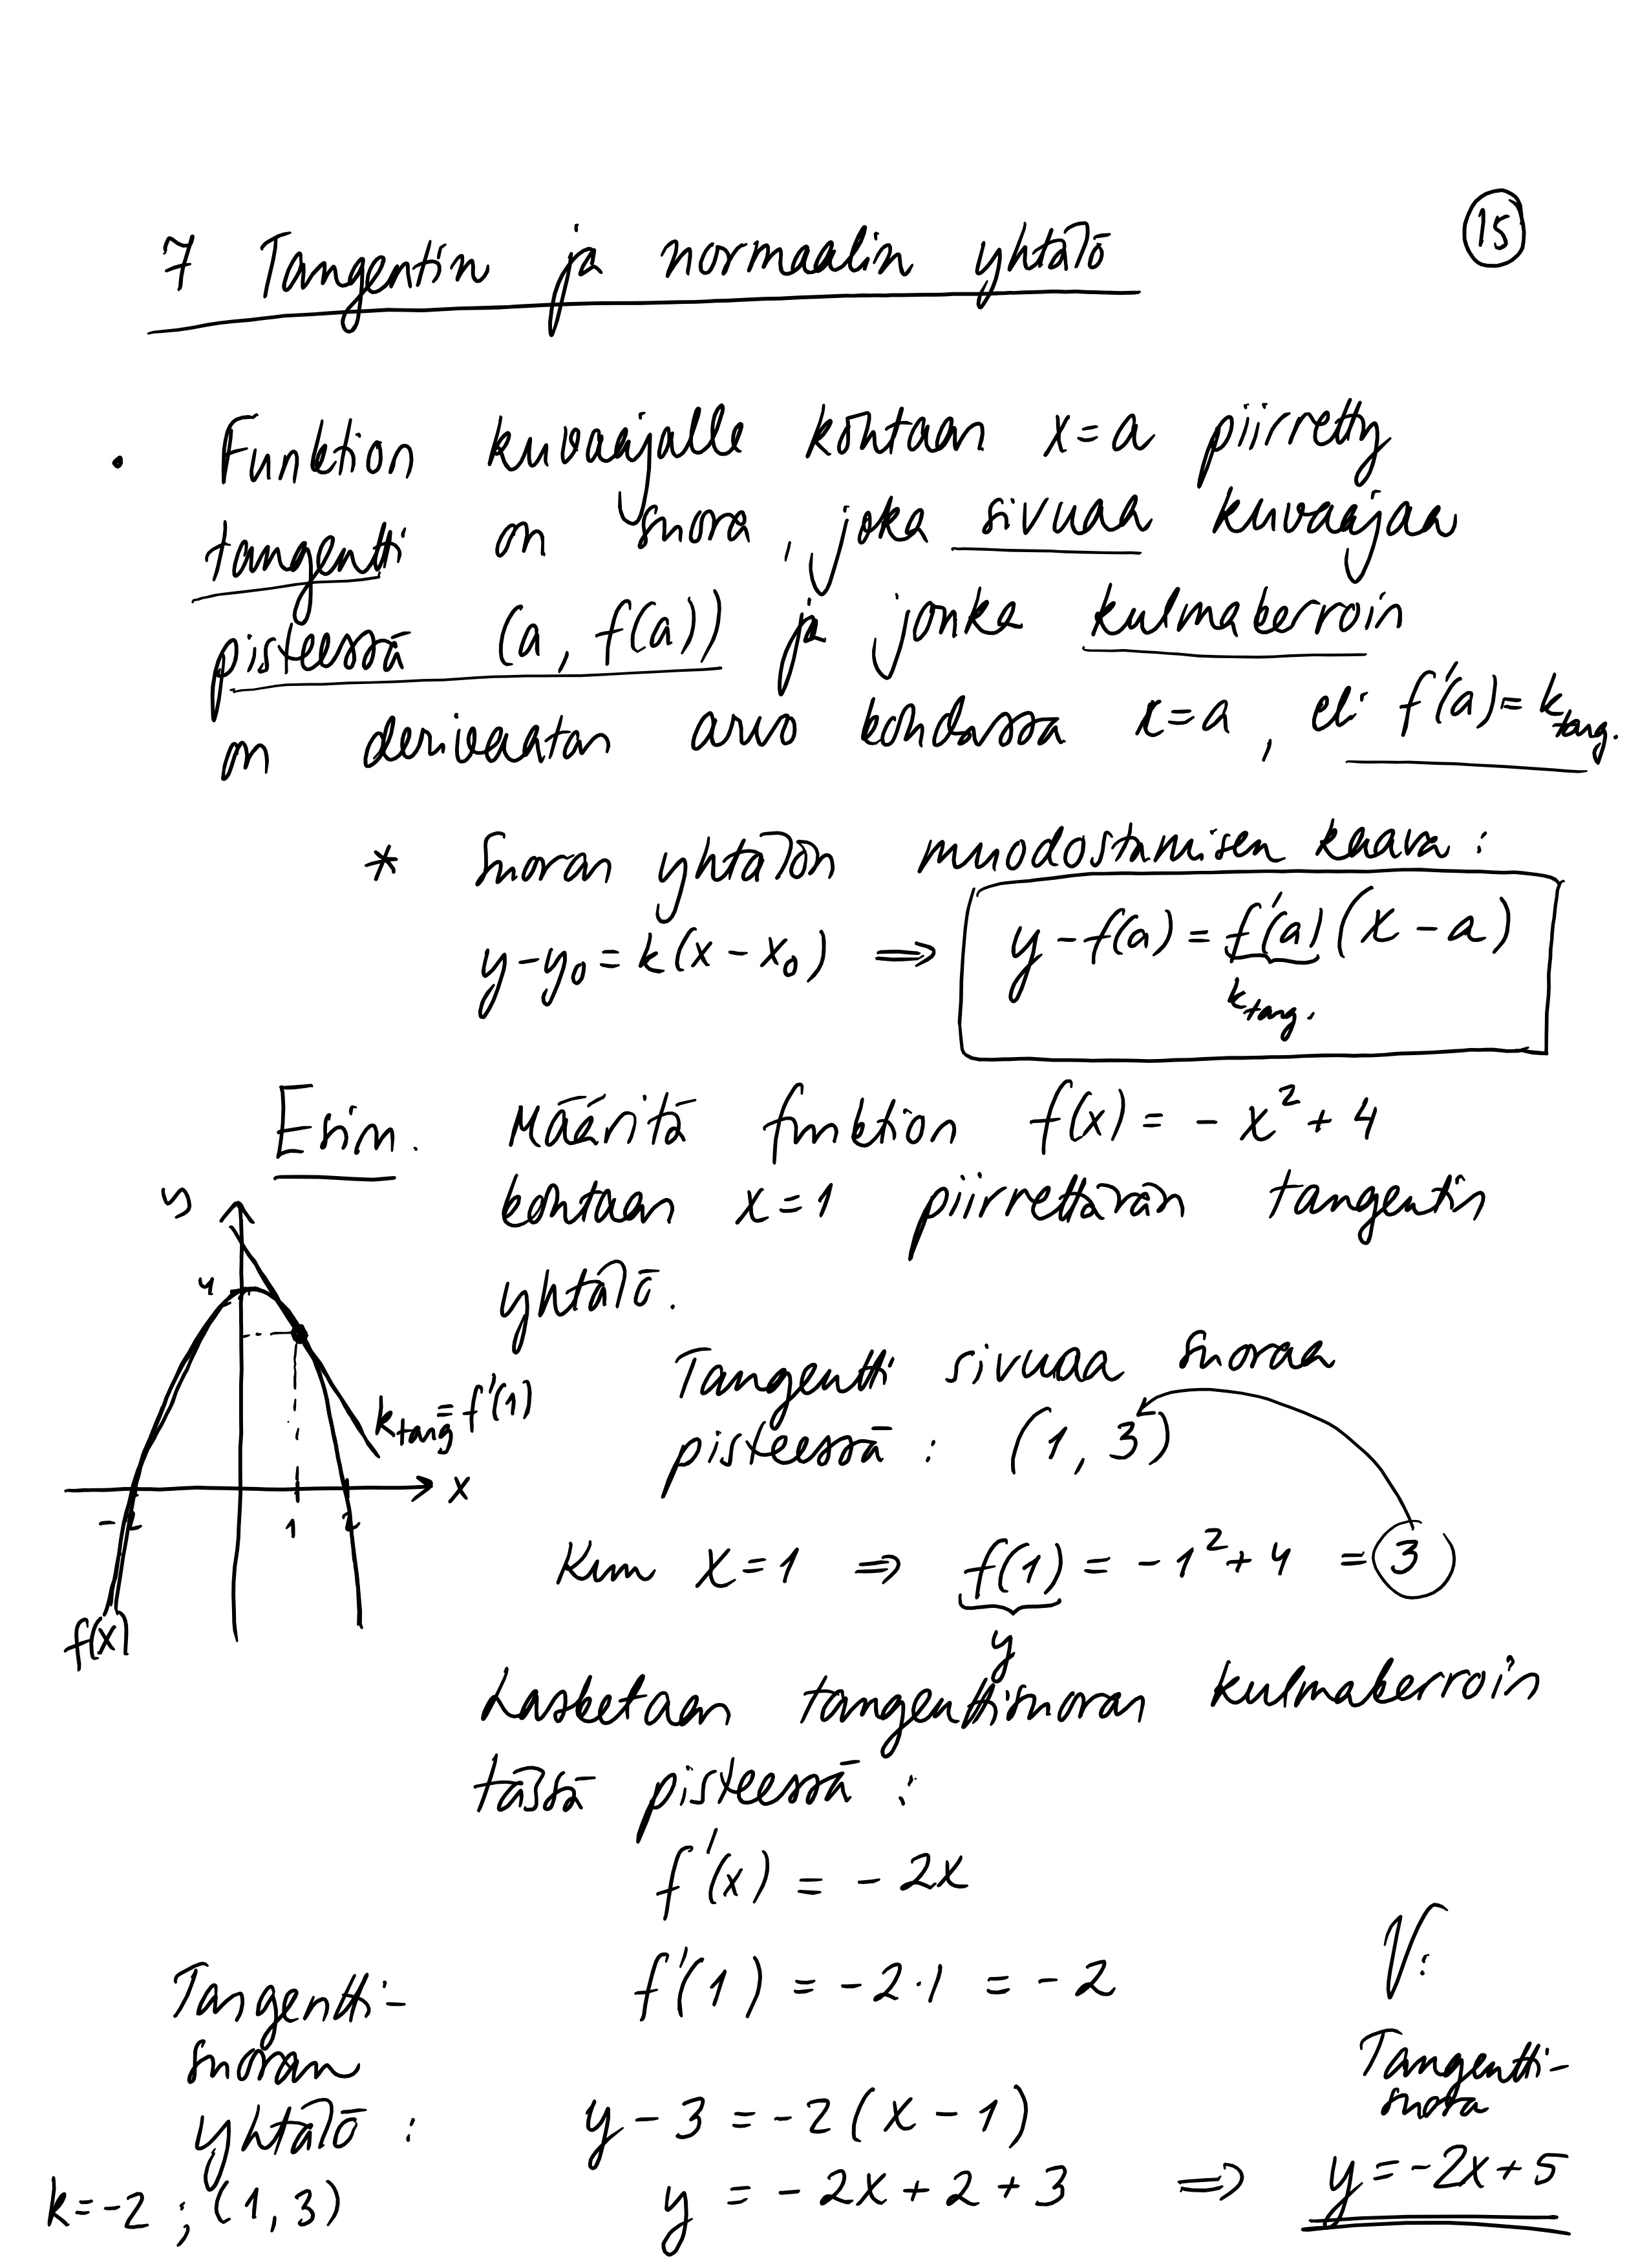 7 Tangentin ja normaalin yhtälö
15
• Funktion kuvaajalle kohtaan x=a piirretty
tangentti on suora, joka sivuaa kuvaajaa
pisteessä (a, f(a)) ja jonka kulmakerroin
on derivaatan arvo kohdassa x=a, eli f'(a)=k_tang.
* Suoran yhtälön muodostamisen kaava:
y-y₀=k(x-x₀) ⇒ y-f(a)=f'(a)(x-a)
k_tang.
Esim. Määritä funktion f(x)=-x²+4
kohtaan x=1 piirrettävän tangentin
yhtälö.
y
4
k_tang=f'(1)
x
-2 1 2
f(x)
Tangentti sivuaa suoraa
pisteessä: (1, 3)
Kun x=1 ⇒ f(1)=-1²+4=3
y
Lasketaan tangenttisuoran kulmakerroin
tässä pisteessä:
f'(x)=-2x
f'(1)=-2·1=-2
Tangentti-
suoran
yhtälö:
k=-2; (1,3)
y-3=-2(x-1)
y=-2x+2+3 ⇒
V:
Tangentti-
suora
y=-2x+5